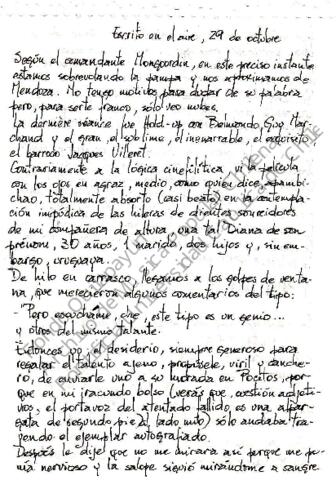 Escrito en el aire, 29 de octubre
Según el comandante Mongordín, en este preciso instante
estamos sobrevolando la pampa y nos aproximamos de
Mendoza. No tengo motivos para dudar de su palabra
pero, para serte franco, sólo veo nubes.
La dernière séance fue Hold-up con Belmondo, Guy Mar-
chand y el gran, el sublime, el inenarrable, el exquisito,
el barroco Jacques Villeret.
Contrariamente a la lógica cinefilítica, vi la película
con los ojos en agraz, medio, como quien dice, apambi-
chao, totalmente absorto (casi beato) en la contempla-
ción impúdica de las hileras de dientes sonreidores
de mi compañera de altura, una tal Diana de son
prénom, 30 años, 1 marido, dos hijos y, sin em-
bargo, uruguaya.
De hito en carrasco, llegamos a los golpes de venta-
na, que merecieron algunos comentarios del tipo:
"Pero escuchame, che, este tipo es un genio..."
y otros del mismo talante.
Entonces yo, el desiderio, siempre generoso para
regalar el talento ajeno, propúsele, viril y canche-
ro, de enviarle uno a su morada en Pocitos, por-
que en mi iracundo bolso (verás que, cuestión adjeti-
vos, el portavoz del atentado fallido es una alpar-
gata de segundo pie al lado mío) sólo andaba tra-
yendo el ejemplar autografiado.
Después le dije que no me mirara así porque me po-
nía nervioso y la salope siguió mirándome a sangre